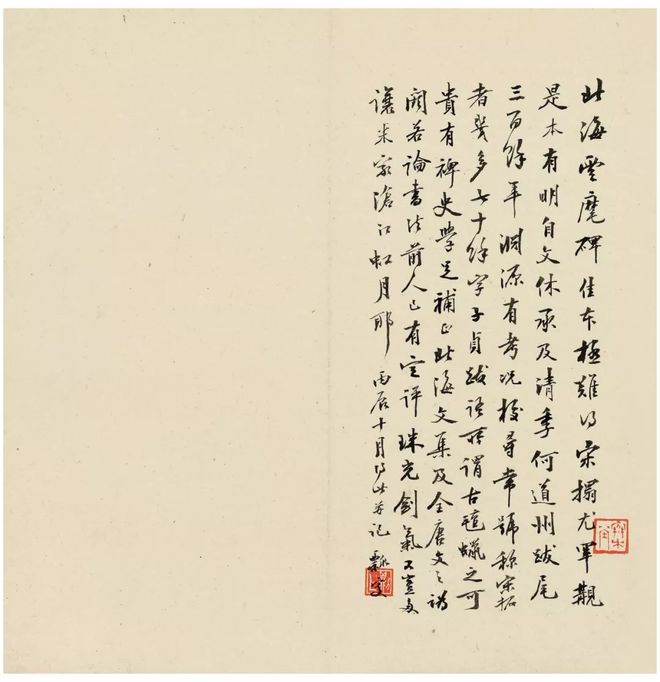 北海雲麾碑佳本極難得宋搨尤罕覯
是本有明自文休承及清季何道州跋尾
三百餘年淵源有考況校尋常號稱宋拓
者幾多七十餘字子貞跋語所謂古氈蠟之可
貴有裨史學足補正北海文集及全唐文之譌
闕若論書法前人已有定評珠光劍氣豈多
讓米家滄江虹月耶 丙辰十月得此并記 叟